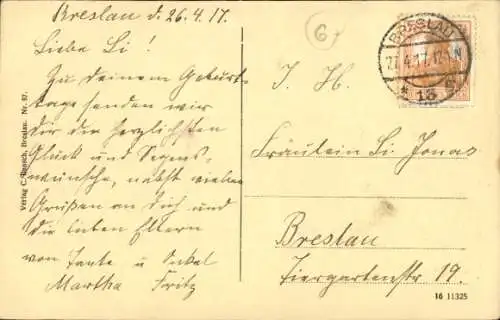 Breslau d. 26.4.17.
Liebe Li!
Zu deinem Geburts-
tage senden wir
dir die herzlichsten
Glück und Segens-
wünsche, nebst vielen
Grüßen an dich und
die lieben Eltern
von Tante u Onkel
Martha Fritz
6
BRESLAU
27.4.17.12-1N
* 13
I. H.
Fräulein Li Jonas
Breslau
Tiergartenstr 19.
Verlag C. Breslau. Nr. 97.
16 11325